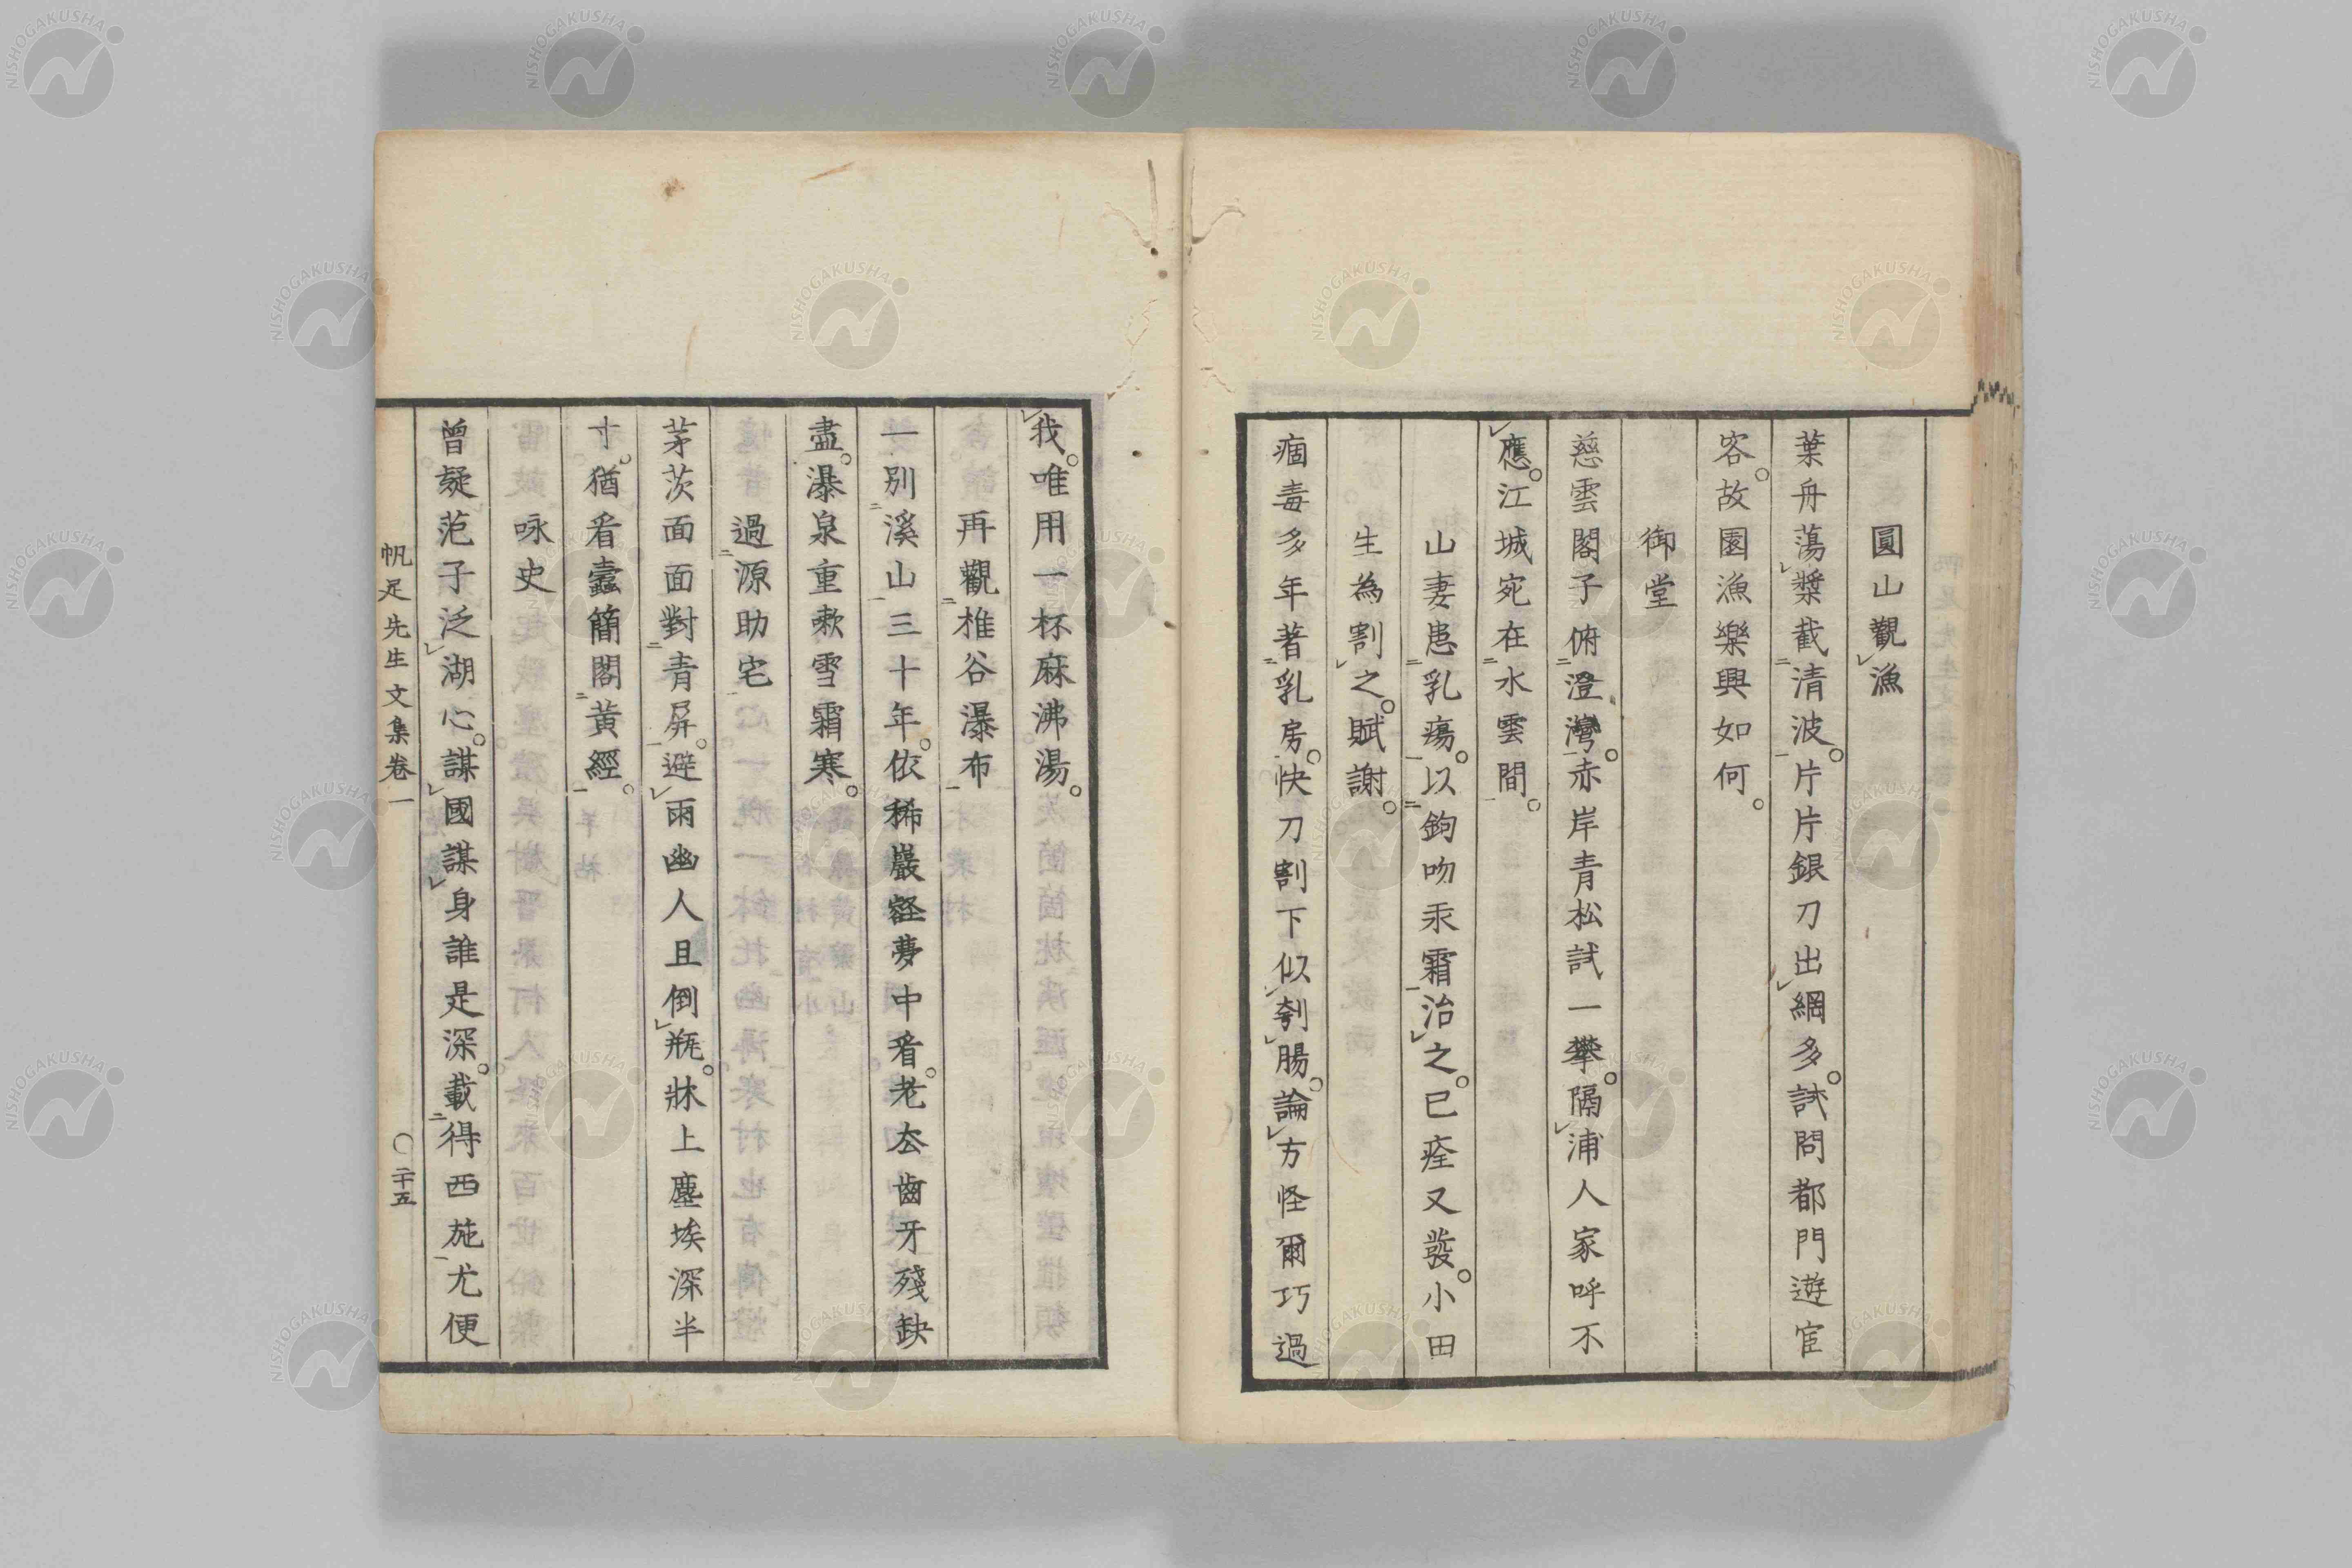 圓山觀漁
葉舟蕩槳截清波。片片銀刀出網多。試問都門遊宦
容。故園漁樂興如何。
御堂
慈雲閣子俯澄灣。赤岸青松試一攀。隔浦人家呼不
應。江城宛在水雲間。
山妻患乳瘍。以鉤吻汞霜治之。已痊又發。小田
生為割之。賦謝。
痼毒多年著乳房。快刀割下似刳腸。論方怪爾巧過
我。唯用一杯麻沸湯。
再觀椎谷瀑布
一別溪山三十年。依稀巖壑夢中看。老去齒牙殘缺
盡。瀑泉重漱雪霜寒。
過源助宅
茅茨面面對青屏。避雨幽人且倒瓶。牀上塵埃深半
寸。猶看蠹簡閣黃經。
咏史
曾疑范子泛湖心。謀國謀身誰是深。載得西施尤便
帆足先生文集卷一
〇二十五
NISHOGAKUSHA